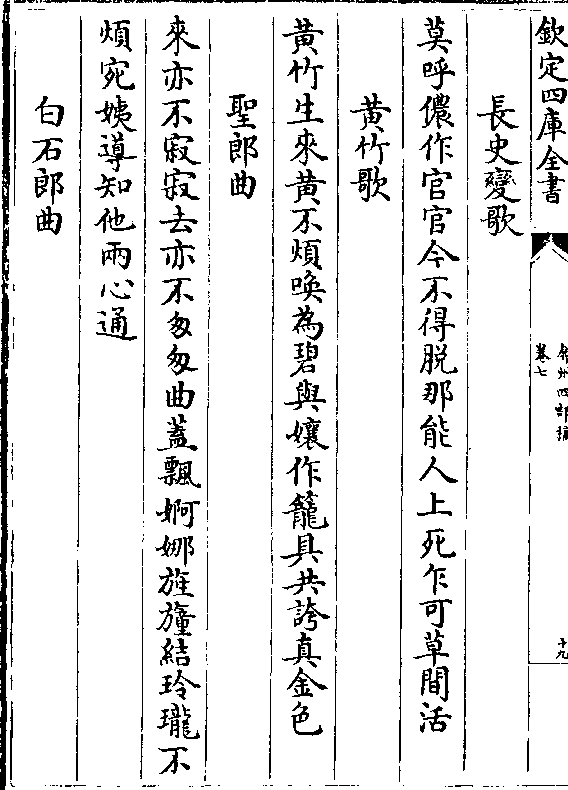 欽定四庫全書
弇州四部稿
卷七
十九
長史變歌
莫呼儂作官官今不得脱那能人上死乍可草間活
黃竹歌
黃竹生來黃不煩喚為碧與孃作籠具共誇真金色
聖郎曲
來亦不寂寂去亦不匆匆曲蓋飄婀娜旌旛結玲瓏不
煩宛姨導知他兩心通
白石郎曲